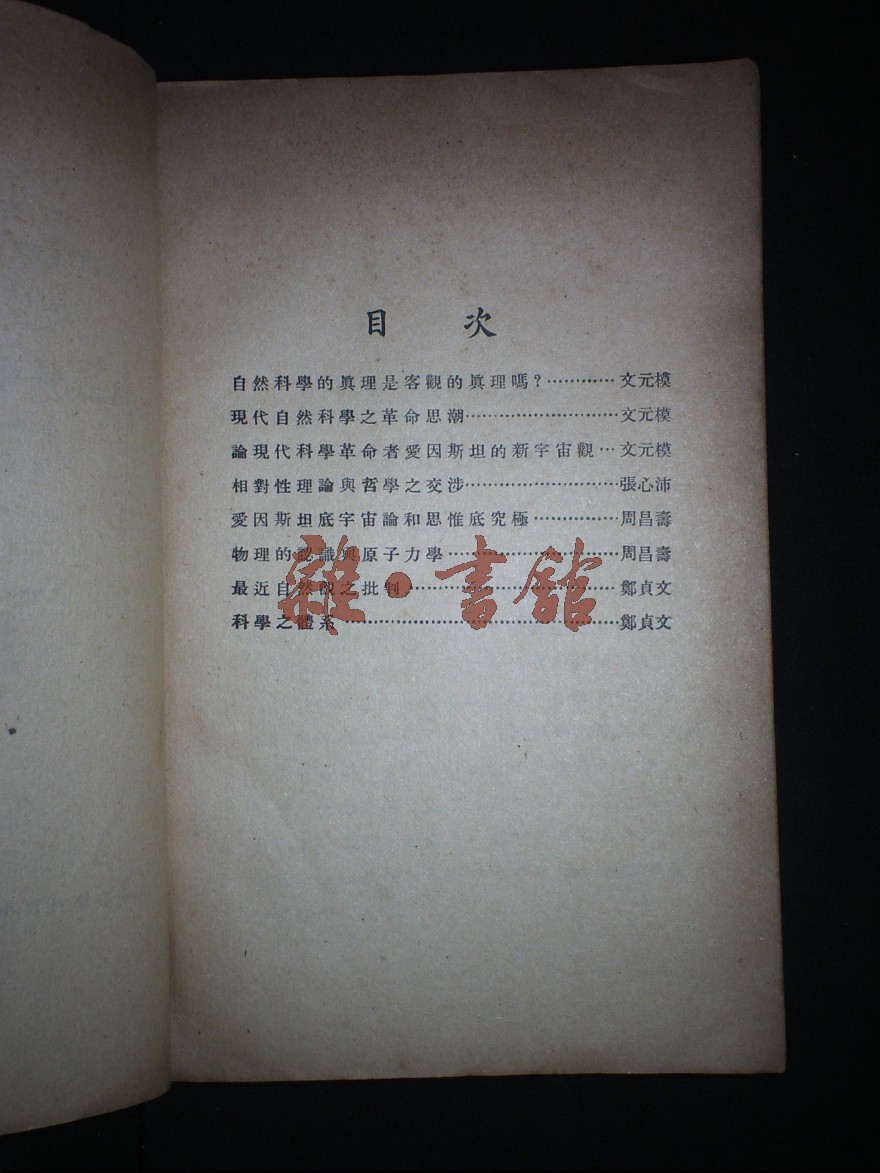 目　次
自然科學的眞理是客觀的眞理嗎？…………文元模
現代自然科學之革命思潮………………………文元模
論現代科學革命者愛因斯坦的新宇宙觀…文元模
相對性理論與哲學之交涉………………………張心沛
愛因斯坦底宇宙論和思惟底究極……………周昌壽
物理的認識與原子力學…………………………周昌壽
最近自然觀之批判………………………………鄭貞文
科學之體系…………………………………………鄭貞文
雜·書館